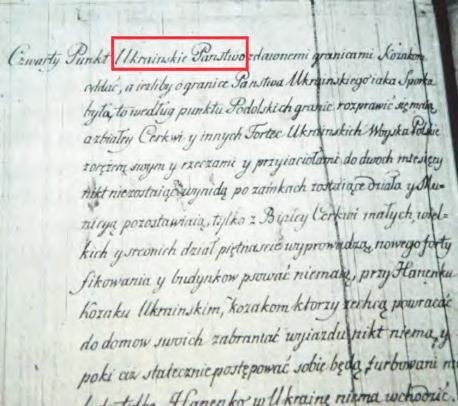 Czwarty Punkt Ukrainskie Panstwo zdawnemi granicami Kozakom
oddać, a iezliby o granice Panstwa Ukrainskiego iaka Sporka
była, to według punktu Podolskich granic rozprawić się maią
a z białey Cerkwi y innych Fortec Ukrainskich Woyska Polskie
z orężem swym y rzeczami y przyiaciołami, do dwoch miesięcy
nikt niezostaiąc wynidą po zamkach zostaiące działa y Mu-
nicyą pozostawiaią, tylko z Białey Cerkwi małych, wiel-
kich y srednich dział piętnascie wyprowadzą, nowego forty
fikowania y budynkow psować niemaią, przy Hanenku
Kozaku Ukrainskim, kozakom ktorzy zechcą powracać
do domow swoich zabraniać wyiazdu nikt niema, y
poki aż statecznie postępować sobie będą, turbowani
Hanenko w Ukrainę niema wchodzić.